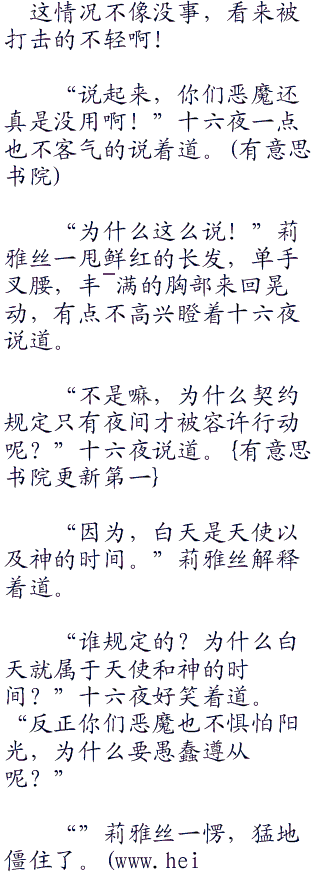 这情况不像没事，看来被
打击的不轻啊！
“说起来，你们恶魔还
真是没用啊！”十六夜一点
也不客气的说着道。(有意思
书院)
“为什么这么说！”莉
雅丝一甩鲜红的长发，单手
叉腰，丰¯满的胸部来回晃
动，有点不高兴瞪着十六夜
说道。
“不是嘛，为什么契约
规定只有夜间才被容许行动
呢？”十六夜说道。{有意思
书院更新第一}
“因为，白天是天使以
及神的时间。”莉雅丝解释
着道。
“谁规定的？为什么白
天就属于天使和神的时
间？”十六夜好笑着道。
“反正你们恶魔也不惧怕阳
光，为什么要愚蠢遵从
呢？”
“”莉雅丝一愣，猛地
僵住了。(www.hei